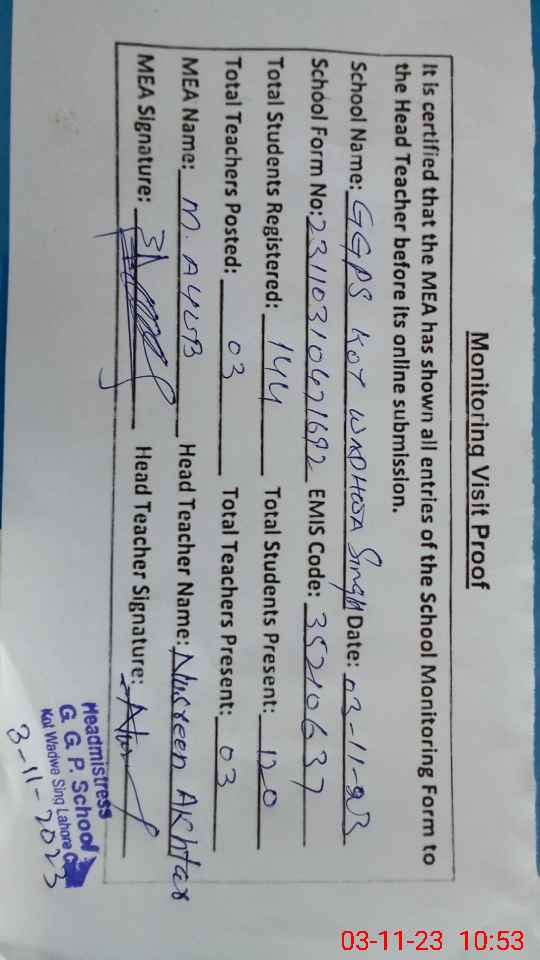 Monitoring Visit Proof
It is certified that the MEA has shown all entries of the School Monitoring Form to
the Head Teacher before its online submission.
School Name: GGPS KOT WADHOA Singh Date: 03-11-23
School Form No: 23110310471692 EMIS Code: 35210637
Total Students Registered: 144 Total Students Present: 120
Total Teachers Posted: 03 Total Teachers Present: 03
MEA Name: M. AYUB Head Teacher Name: Nasreen Akhtar
MEA Signature: Head Teacher Signature:
Headmistress
G. G. P. School
Kot Wadwa Sing Lahore C
3-11-2023
03-11-23 10:53